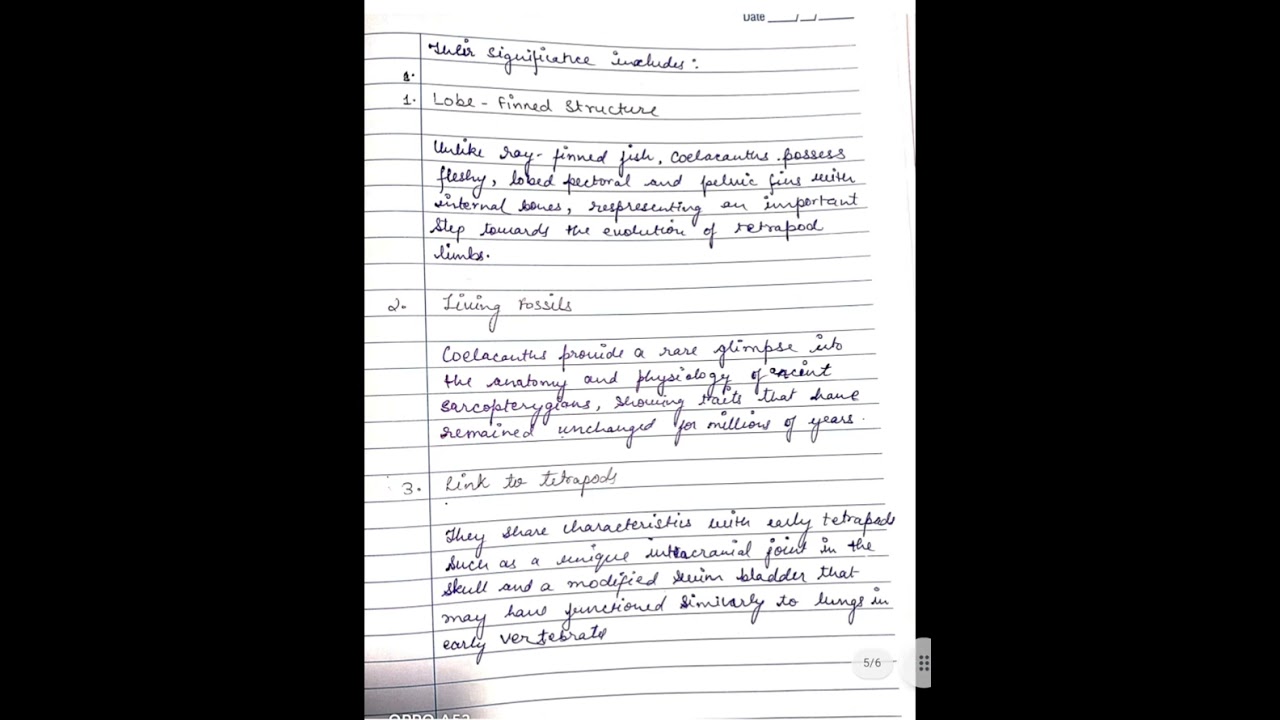 Date ___/__/____
Their significance includes:
1.
1. Lobe - Finned Structure
Unlike ray-finned fish, Coelacanths possess
fleshy, lobed pectoral and pelvic fins with
internal bones, respresenting an important
step towards the evolution of tetrapod
limbs.
2. Living Fossils
Coelacanths provide a rare glimpse into
the anatomy and physiology of ancient
sarcopterygians, showing traits that have
remained unchanged for millions of years.
3. Link to tetrapods
They share characteristics with early tetrapods
such as a unique intracranial joint in the
skull and a modified swim bladder that
may have functioned similarly to lungs in
early vertebrate
5/6
OPPO A53